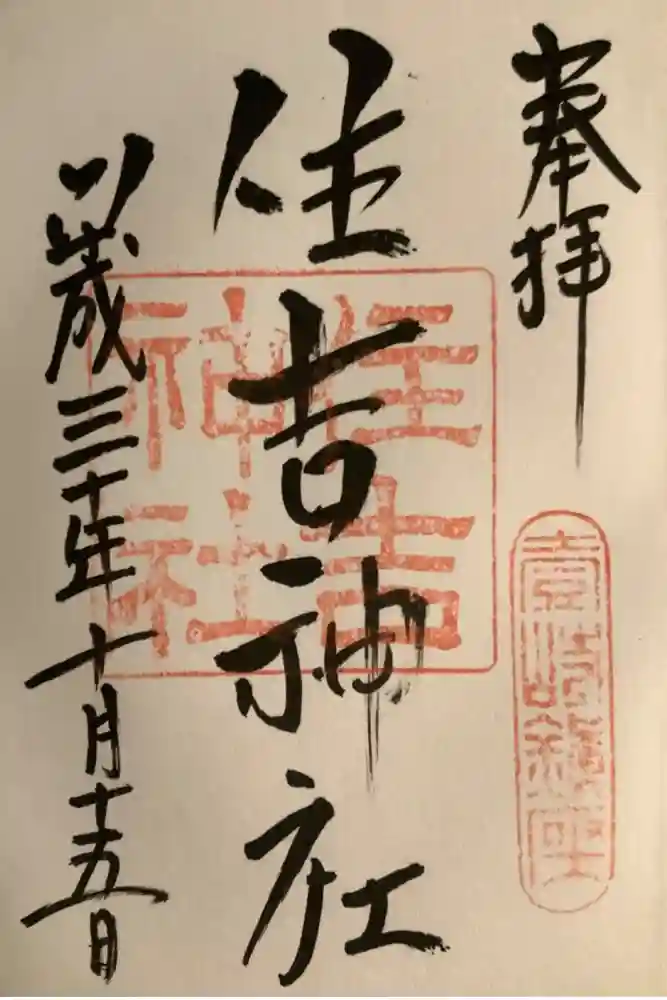 奉拝
住吉神社
住吉
神社
平成三十年十月十五日